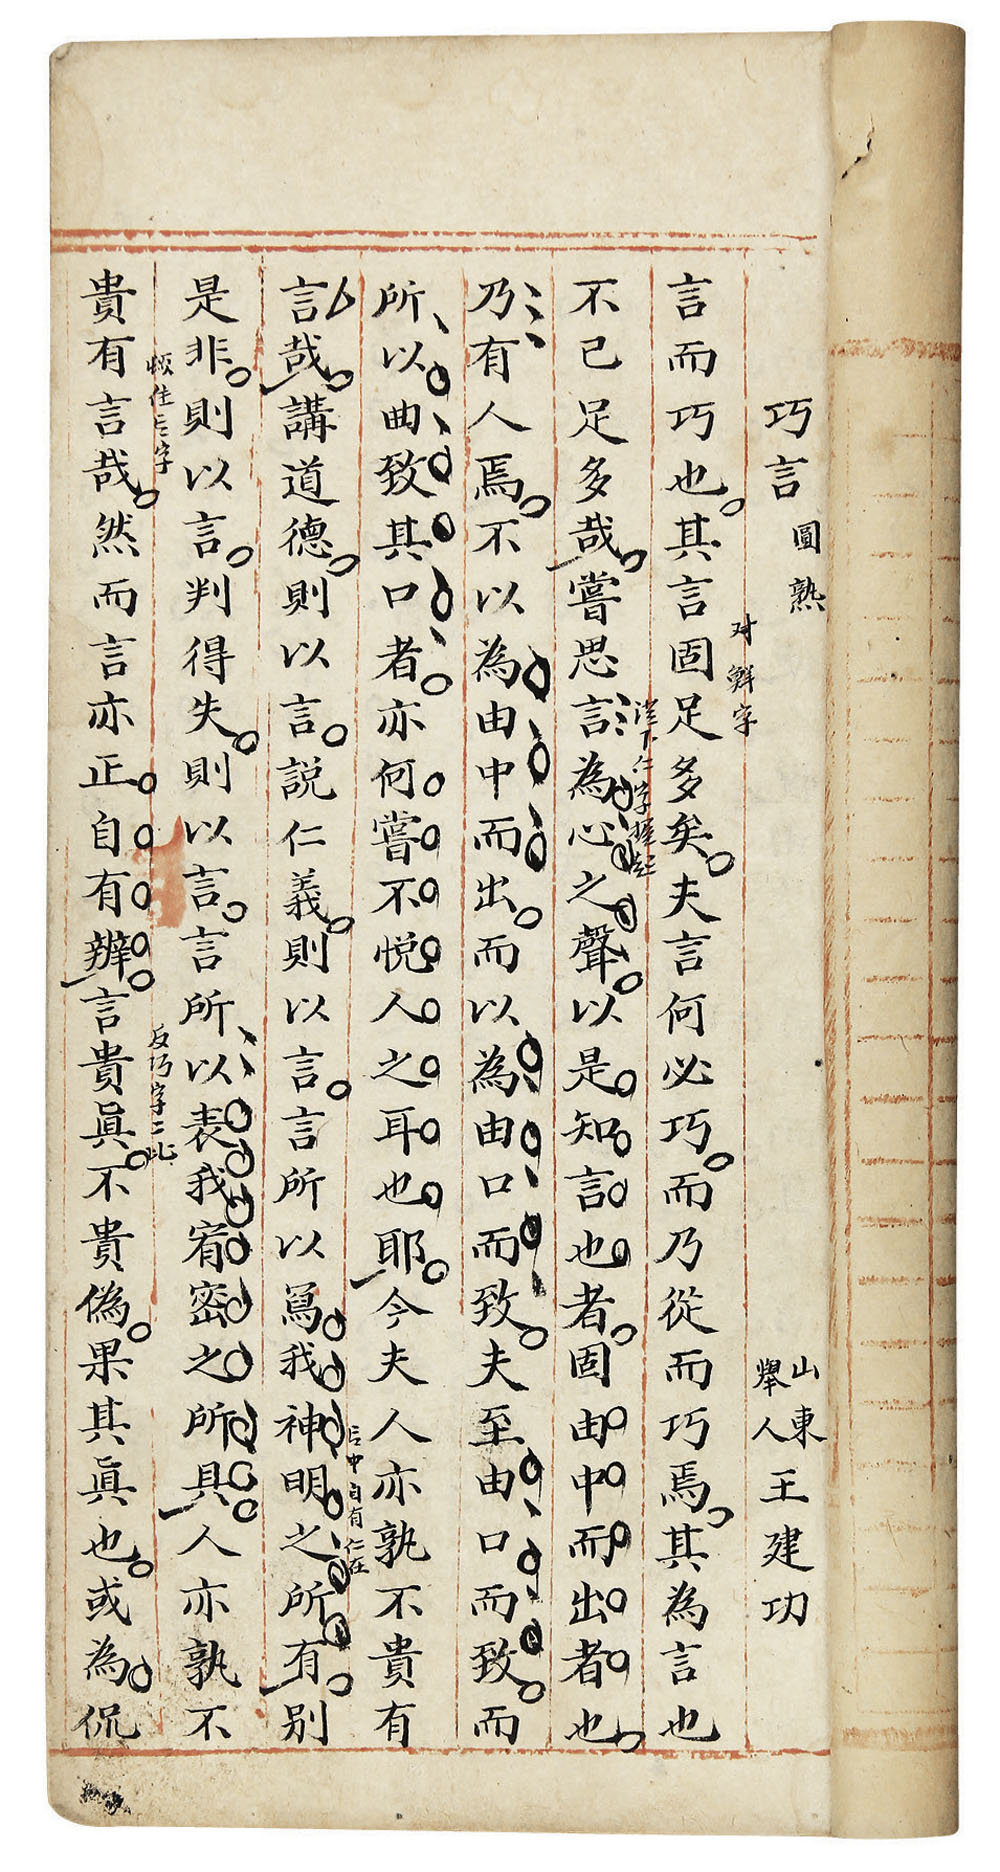 巧言 圓熟 山東擧人 王建功
对鮮字
言而巧也其言固足多矣夫言何必巧而乃從而巧焉其為言也
下仁字
不已足多哉嘗思言為心之聲以是知言也者固由中而出者也
乃有人焉不以為由中而出而以為由口而致夫至由口而致而
所以曲致其口者亦何嘗不悅人之耳也耶今夫人亦孰不貴有
言中自有仁在
言哉講道德則以言説仁義則以言言所以寫我神明之所有别
是非則以言判得失則以言言所以表我宥密之所具人亦孰不
住言字
反巧字二比
貴有言哉然而言亦正自有辨言貴眞不貴偽果其眞也或為侃